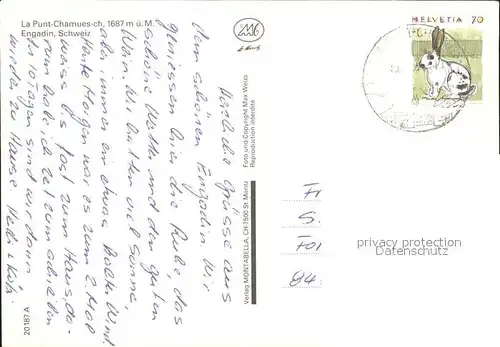 La Punt-Chamues-ch, 1687 m ü. M.
Engadin, Schweiz
HELVETIA 70
Herzliche Grüsse aus
dem schönen Engadin. Wir
geniessen hier die Ruhe, das
schöne Wetter und den guten
Wein. Wir hatten viel Sonne,
aber immer ein etwas Wind.
Heute Morgen war es zum 2. Mal
weiss bis fast zum Haus, da-
rum habe ich Zeit zum schreiben
In 10 Tagen sind wir dann
wieder zu Hause
Foto und Copyright Max Weiss
Reproduction interdite
Verlag MONTABELLA, CH-7500 St. Moritz
20187 A
privacy protection
VALUE4COLLECTORS
S.